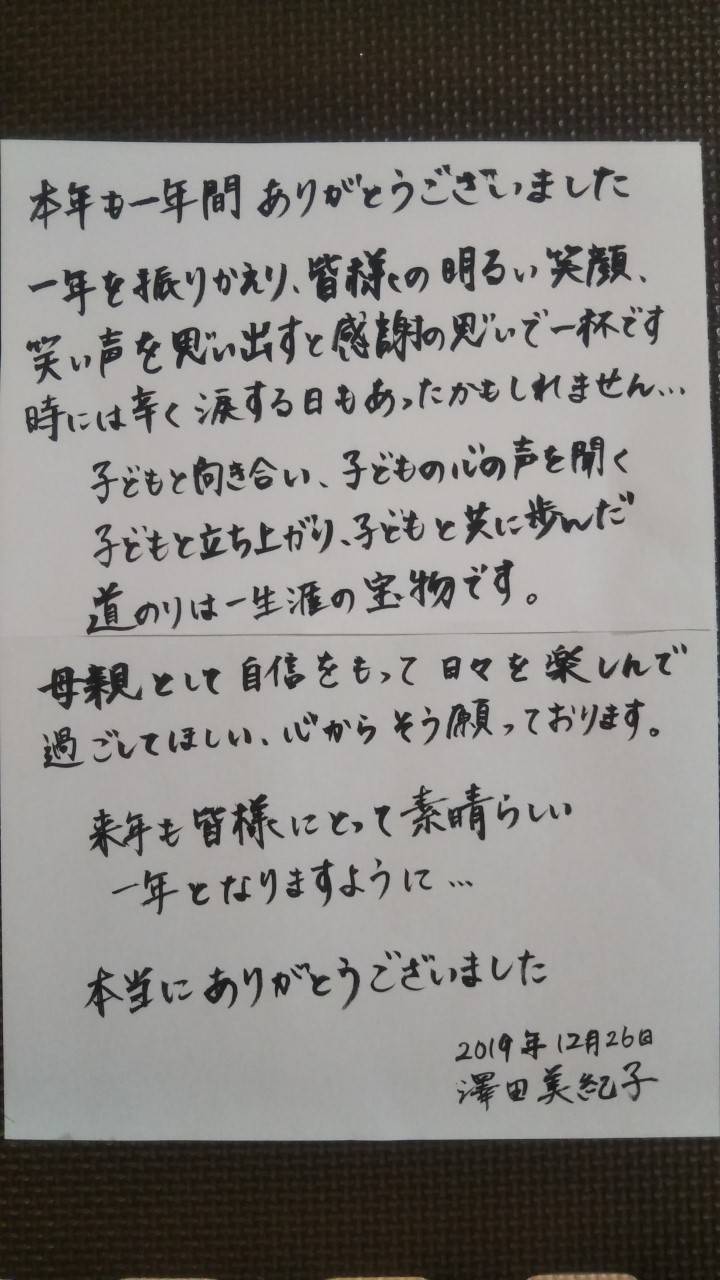 本年も一年間 ありがとうございました
一年を振りかえり、皆様の明るい笑顔、
笑い声を思い出すと感謝の思いで一杯です
時には辛く涙する日もあったかもしれません…
子どもと向き合い、子どもの心の声を聞く
子どもと立ち上がり、子どもと共に歩んだ
道のりは一生涯の宝物です。
母親として自信をもって日々を楽しんで
過ごしてほしい、心からそう願っております。
来年も皆様にとって素晴らしい
一年となりますように…
本当にありがとうございました
2019年12月26日
澤田美紀子